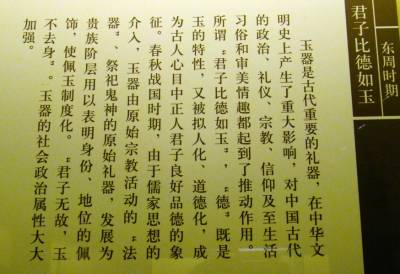 东周时期
君子比德如玉
玉器是古代重要的礼器，在中华文
明史上产生了重大影响，对中国古代
的政治、礼仪、宗教、信仰及至生活
习俗和审美情趣都起到了推动作用。
所谓“君子比德如玉”，“德”既是
玉的特性，又被拟人化、道德化，成
为古人心目中正人君子良好品德的象
征。春秋战国时期，由于儒家思想的
介入，玉器由原始宗教活动的“法
器”、祭祀鬼神的原始礼器，发展为
贵族阶层用以表明身份、地位的佩
饰，使佩玉制度化。“君子无故，玉
不去身”。玉器的社会政治属性大大
加强。